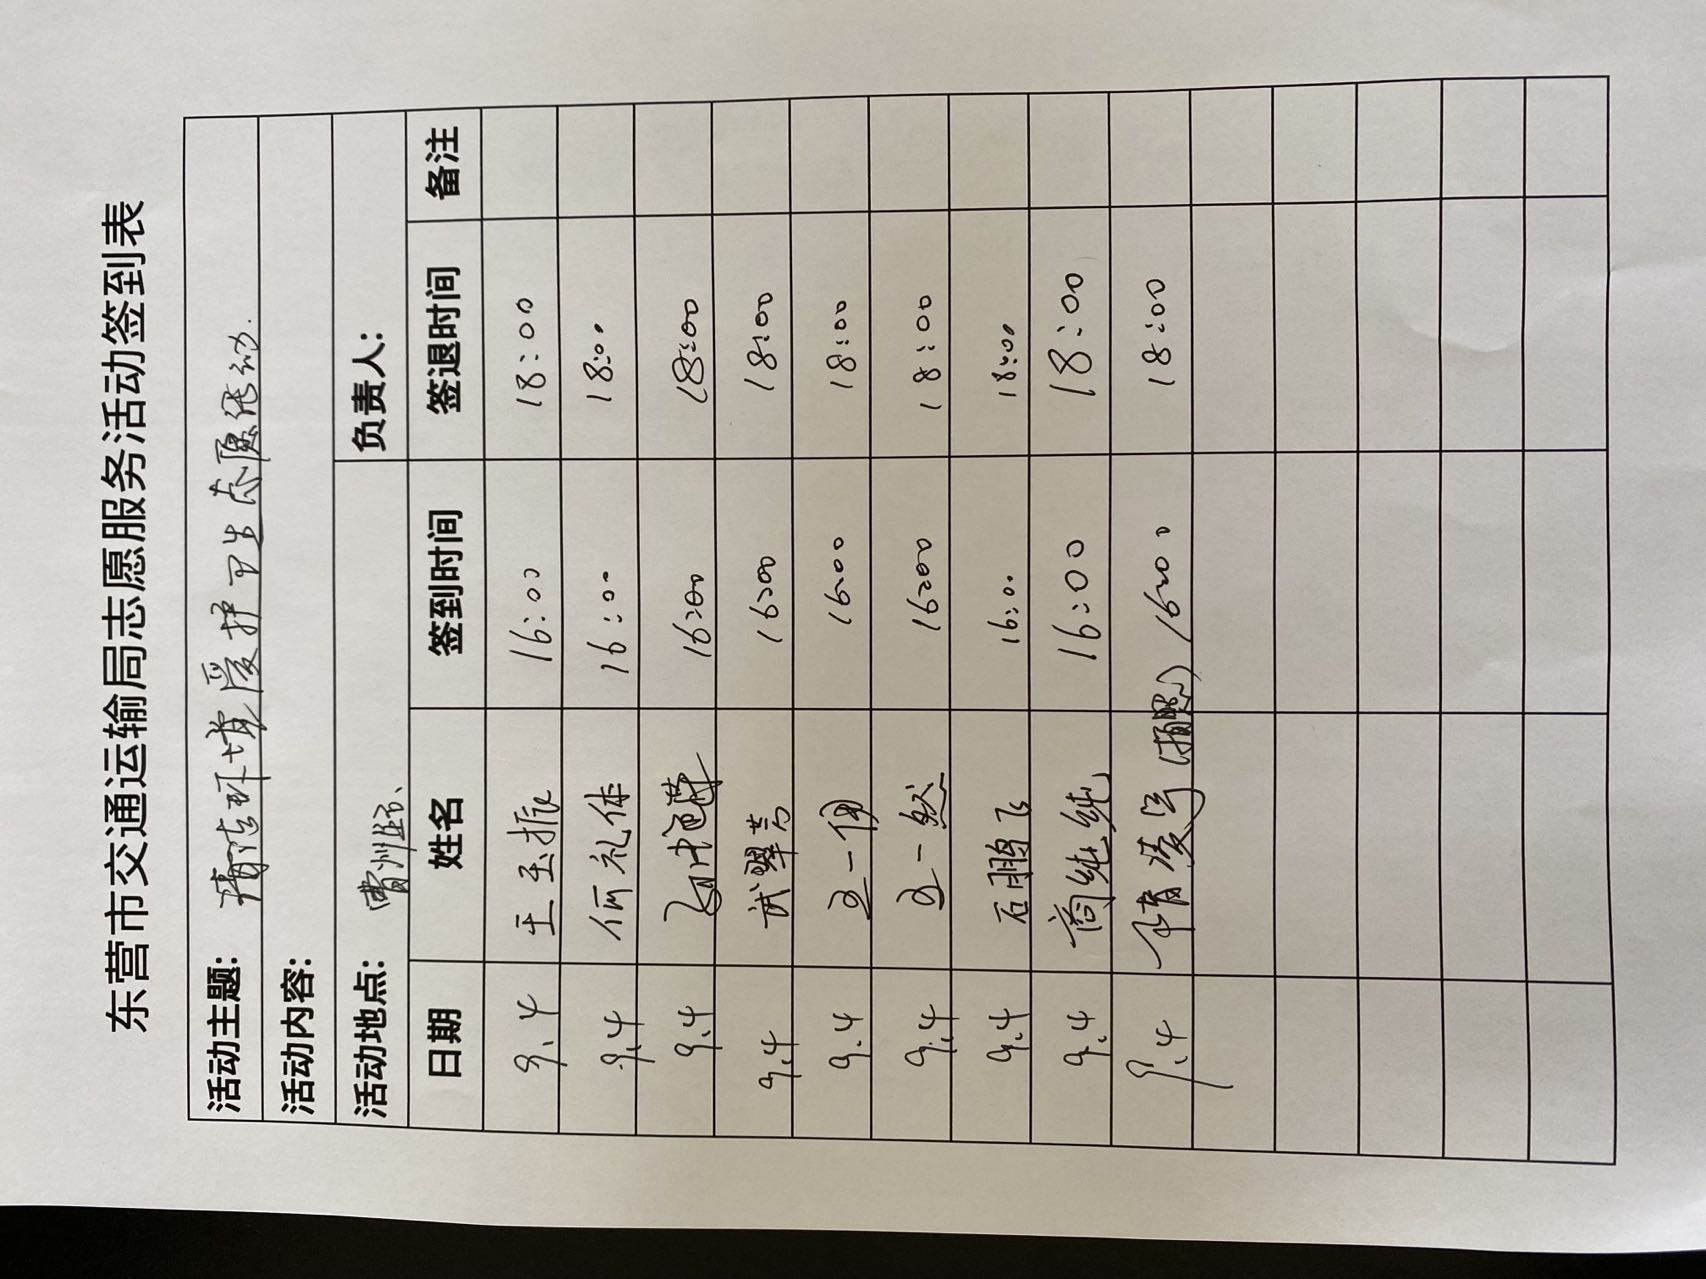 东营市交通运输局志愿服务活动签到表
活动主题: 清洁环境 爱护卫生志愿活动.
活动内容:
活动地点: 曹州路、 负责人:
日期 姓名 签到时间 签退时间 备注
9.4 王玉振 16:00 18:00
9.4 何礼体 16:00 18:00
9.4 16:00 18:00
9.4 武翠芳 16:00 18:00
9.4 16:00 18:00
9.4 王一然 16:00 18:00
9.4 石鹏飞 16:00 18:00
9.4 商纯纯 16:00 18:00
9.4 (拍照) 16:00 18:00